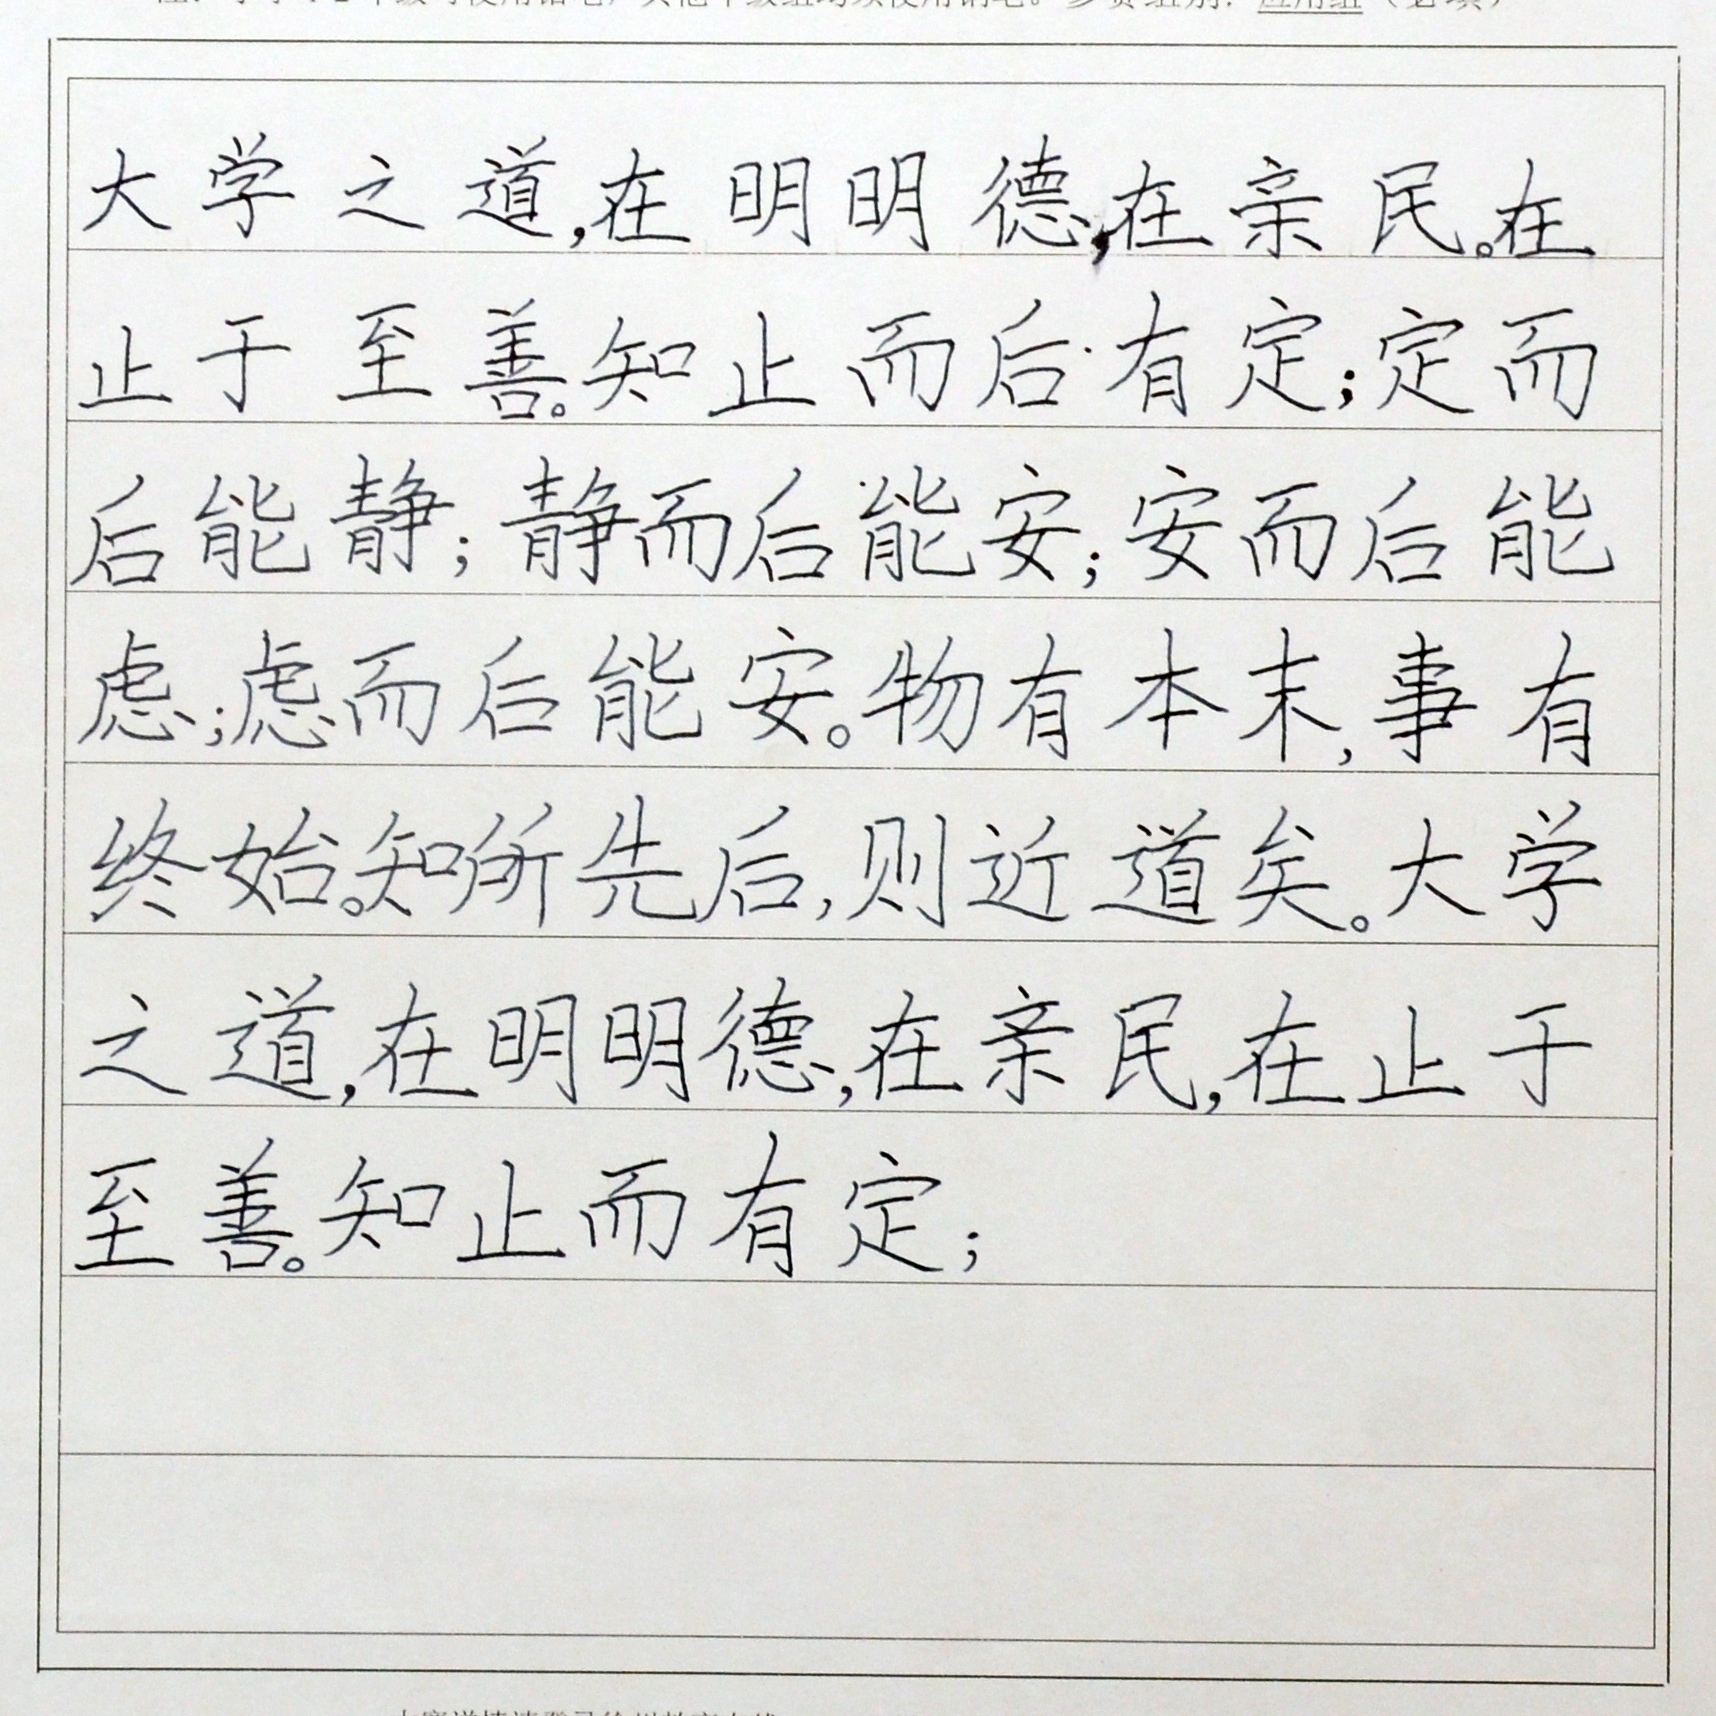 大学之道,在明明德,在亲民。在
止于至善。知止而后有定;定而
后能静;静而后能安;安而后能
虑;虑而后能安。物有本末,事有
终始。知所先后,则近道矣。大学
之道,在明明德,在亲民,在止于
至善。知止而有定;